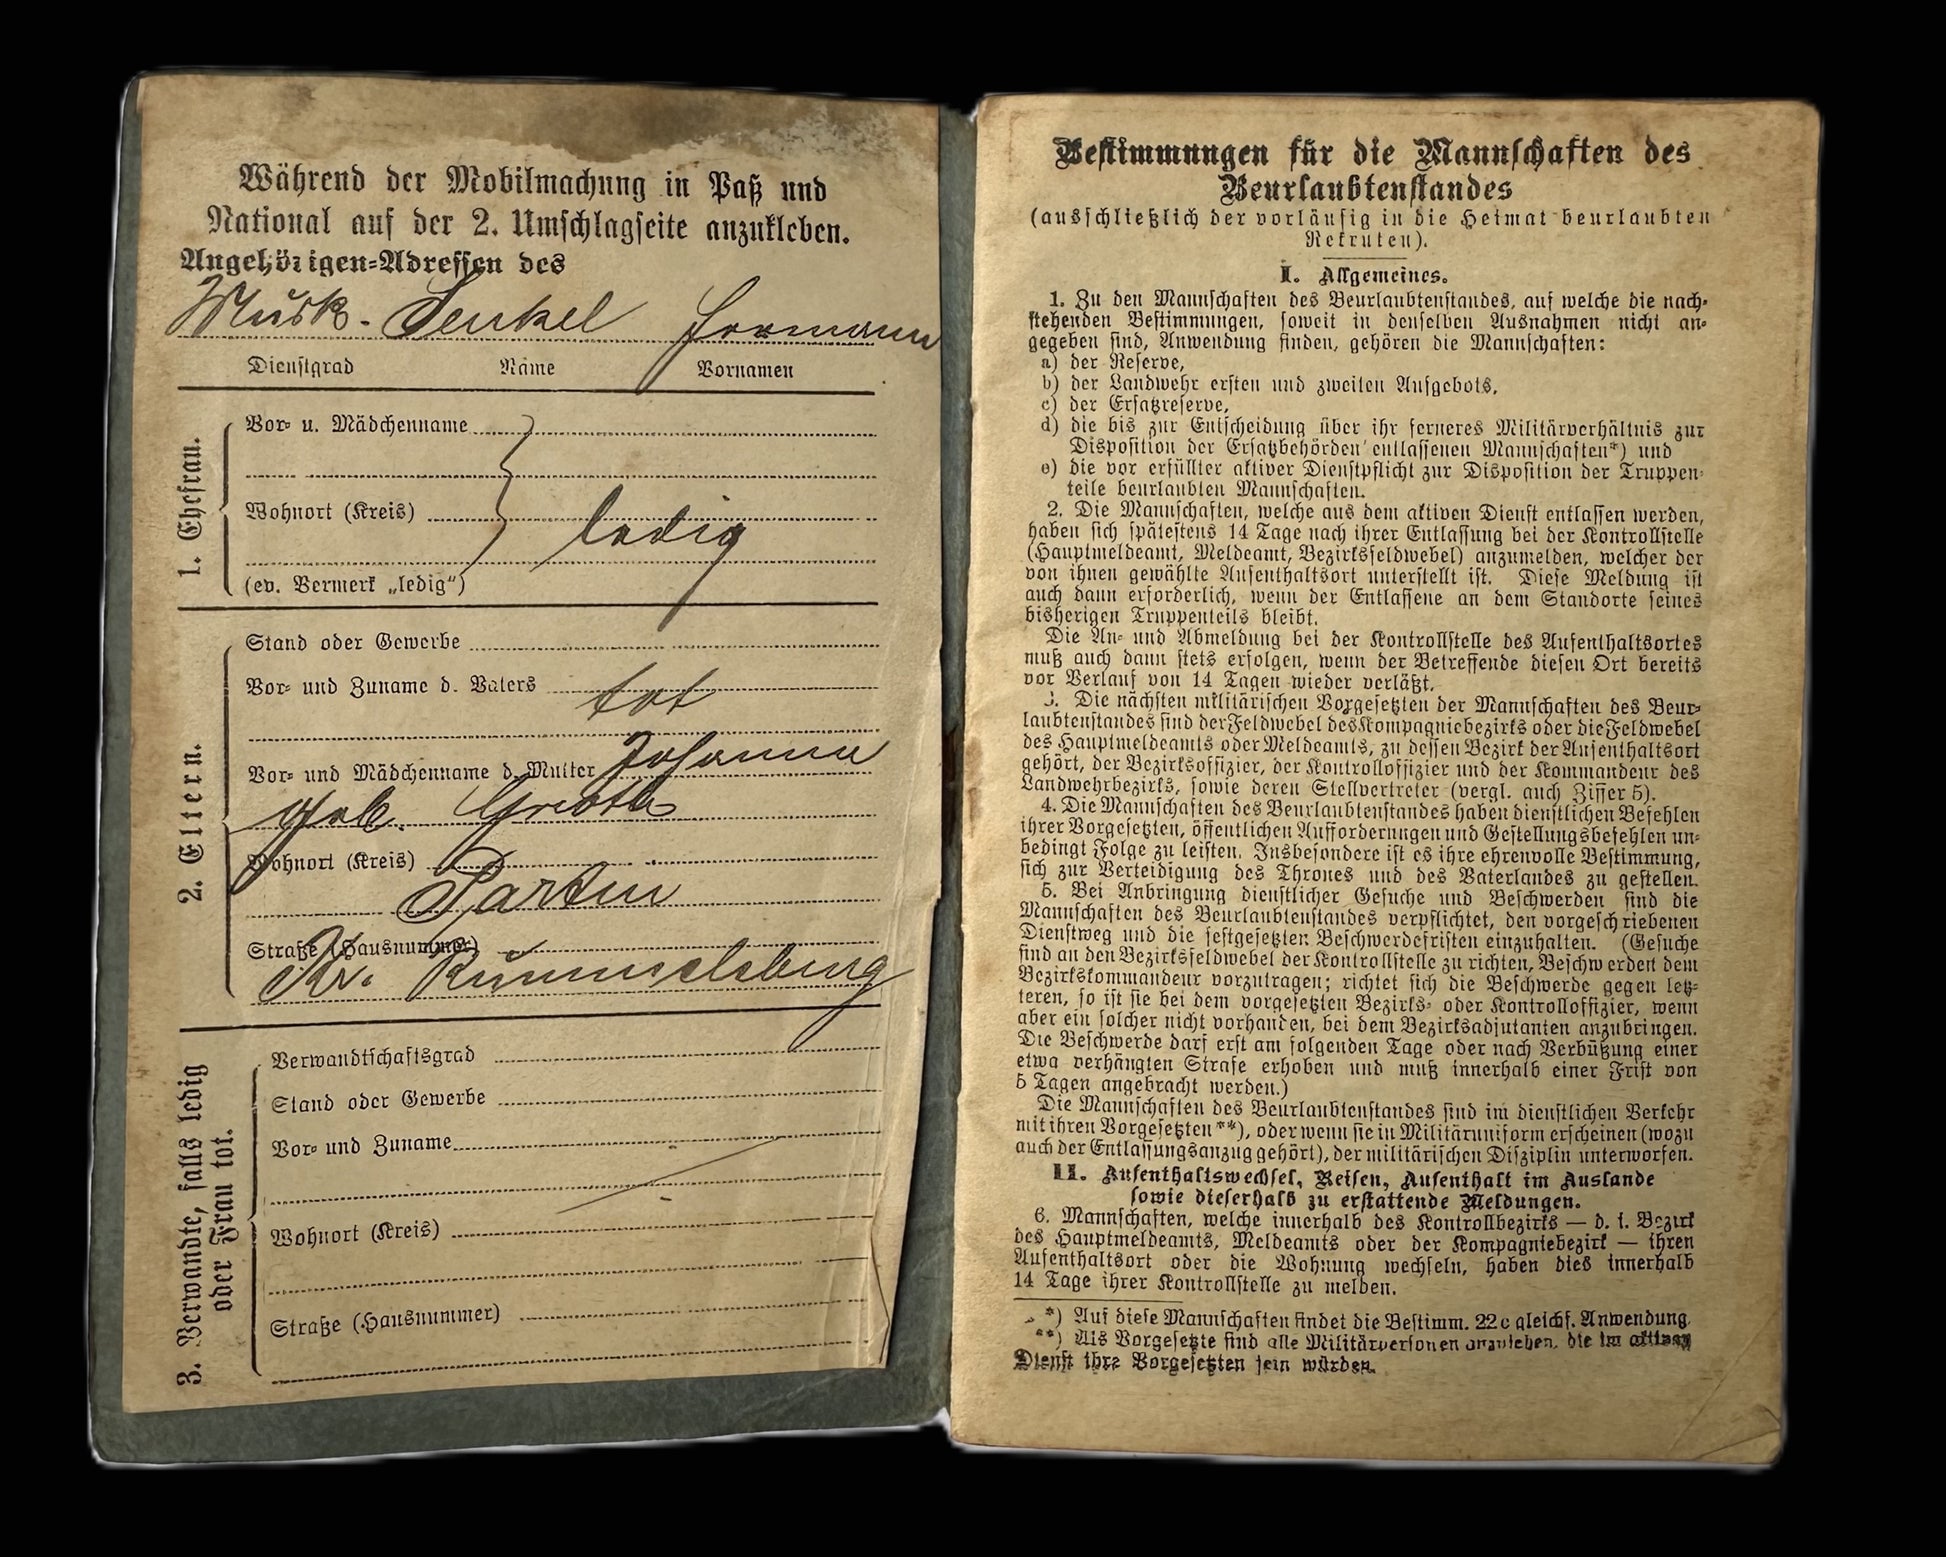 Während der Mobilmachung in Paß und
National auf der 2. Umschlagseite anzukleben.
Angehörigen-Adressen des
Musk. Henkel Hermann
Dienstgrad Name Vornamen
1. Ehefrau.
Vor- u. Mädchenname
Wohnort (Kreis)
ledig
(ev. Vermerk „ledig“)
2. Eltern.
Stand oder Gewerbe
Vor- und Zuname d. Vaters tot
Vor- und Mädchenname d. Mutter Johanna
geb. Groth
Wohnort (Kreis)
Partin
Straße (Hausnummer)
Kr. Rummelsburg
3. Verwandte, falls ledig
oder Frau tot.
Verwandtschaftsgrad
Stand oder Gewerbe
Vor- und Zuname
Wohnort (Kreis)
Straße (Hausnummer)
Bestimmungen für die Mannschaften des
Beurlaubtenstandes
(ausschließlich der vorläufig in die Heimat beurlaubten
Rekruten).
I. Allgemeines.
1. Zu den Mannschaften des Beurlaubtenstandes, auf welche die nach-
stehenden Bestimmungen, soweit in denselben Ausnahmen nicht an-
gegeben sind, Anwendung finden, gehören die Mannschaften:
a) der Reserve,
b) der Landwehr ersten und zweiten Aufgebots,
c) der Ersatzreserve,
d) die bis zur Entscheidung über ihr ferneres Militärverhältnis zur
Disposition der Ersatzbehörden entlassenen Mannschaften*) und
e) die vor erfüllter aktiver Dienstpflicht zur Disposition der Truppen-
teile beurlaubten Mannschaften.
2. Die Mannschaften, welche aus dem aktiven Dienst entlassen werden,
haben sich spätestens 14 Tage nach ihrer Entlassung bei der Kontrollstelle
(Hauptmeldeamt, Meldeamt, Bezirksfeldwebel) anzumelden, welcher der
von ihnen gewählte Aufenthaltsort unterstellt ist. Diese Meldung ist
auch dann erforderlich, wenn der Entlassene an dem Standorte seines
bisherigen Truppenteils bleibt.
Die An- und Abmeldung bei der Kontrollstelle des Aufenthaltsortes
muß auch dann stets erfolgen, wenn der Betreffende diesen Ort bereits
vor Verlauf von 14 Tagen wieder verläßt.
3. Die nächsten militärischen Vorgesetzten der Mannschaften des Beur-
laubtenstandes sind der Feldwebel des Kompagniebezirks oder die Feldwebel
des Hauptmeldeamts oder Meldeamts, zu dessen Bezirk der Aufenthaltsort
gehört, der Bezirksoffizier, der Kontrolloffizier und der Kommandeur des
Landwehrbezirks, sowie deren Stellvertreter (vergl. auch Ziffer 5).
4. Die Mannschaften des Beurlaubtenstandes haben dienstlichen Befehlen
ihrer Vorgesetzten, öffentlichen Aufforderungen und Gestellungsbefehlen un-
bedingt Folge zu leisten. Insbesondere ist es ihre ehrenvolle Bestimmung,
sich zur Verteidigung des Thrones und des Vaterlandes zu gestellen.
5. Bei Anbringung dienstlicher Gesuche und Beschwerden sind die
Mannschaften des Beurlaubtenstandes verpflichtet, den vorgeschriebenen
Dienstweg und die festgesetzten Beschwerdefristen einzuhalten. (Gesuche
sind an den Bezirksfeldwebel der Kontrollstelle zu richten, Beschwerden dem
Bezirkskommandeur vorzutragen; richtet sich die Beschwerde gegen letz-
teren, so ist sie bei dem vorgesetzten Bezirks- oder Kontrolloffizier, wenn
aber ein solcher nicht vorhanden, bei dem Bezirksadjutanten anzubringen.
Die Beschwerde darf erst am folgenden Tage oder nach Verbüßung einer
etwa verhängten Strafe erhoben und muß innerhalb einer Frist von
5 Tagen angebracht werden.)
Die Mannschaften des Beurlaubtenstandes sind im dienstlichen Verkehr
mit ihren Vorgesetzten**), oder wenn sie in Militäruniform erscheinen (wozu
auch der Entlassungsanzug gehört), der militärischen Disziplin unterworfen.
II. Aufenthaltswechsel, Reisen, Aufenthalt im Auslande
sowie dieserhalb zu erstattende Meldungen.
6. Mannschaften, welche innerhalb des Kontrollbezirks — d. i. Bezirk
des Hauptmeldeamts, Meldeamts oder der Kompagniebezirk — ihren
Aufenthaltsort oder die Wohnung wechseln, haben dies innerhalb
14 Tage ihrer Kontrollstelle zu melden.
*) Auf diese Mannschaften findet die Bestimm. 22c gleichf. Anwendung.
**) Als Vorgesetzte sind alle Militärpersonen anzusehen, die im aktiven
Dienst ihre Vorgesetzten sein würden.